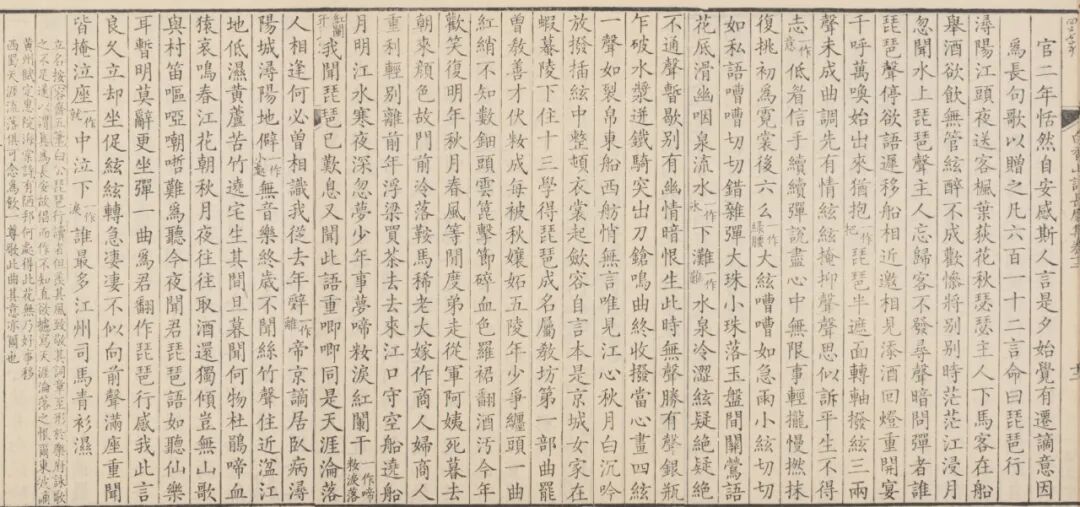 官二年恬然自安感斯人言是夕始覺有遷謫意因
為長句歌以贈之凡六百一十二言命曰琵琶行
潯陽江頭夜送客楓葉荻花秋瑟瑟主人下馬客在船
舉酒欲飲無管絃醉不成歡慘將別別時茫茫江浸月
忽聞水上琵琶聲主人忘歸客不發尋聲暗問彈者誰
琵琶聲停欲語遲移船相近邀相見添酒回燈重開宴
千呼萬喚始出來猶抱一作把琵琶半遮面轉軸撥絃三兩
聲未成曲調先有情絃絃掩抑聲聲思似訴平生不得
志一作意低眉信手續續彈說盡心中無限事輕攏慢撚抹
復挑初為霓裳後六么一作綠腰大絃嘈嘈如急雨小絃切切
如私語嘈嘈切切錯雜彈大珠小珠落玉盤間關鶯語
花底滑幽咽泉流水一作冰下灘一作難水泉冷澀絃疑絕疑絕
不通聲暫歇別有幽情暗恨生此時無聲勝有聲銀瓶
乍破水漿迸鐵騎突出刀鎗鳴曲終收撥當心畫四絃
一聲如裂帛東船西舫悄無言唯見江心秋月白沉吟
放撥插絃中整頓衣裳起斂容自言本是京城女家在
蝦蟇陵下住十三學得琵琶成名屬教坊第一部曲罷
曾教善才伏粧成每被秋孃妬五陵年少爭纏頭一曲
紅綃不知數鈿頭雲篦擊節碎血色羅裙翻酒汚今年
歡笑復明年秋月春風等閒度弟走從軍阿姨死暮去
朝來顏色故門前冷落鞍馬稀老大嫁作商人婦商人
重利輕別離前年浮梁買茶去去來江口守空船遶船
月明江水寒夜深忽夢少年事夢啼粧淚紅闌干一作啼粧淚落
紅闌干我聞琵琶已歎息又聞此語重唧唧同是天涯淪落
人相逢何必曾相識我從去年辭一作離帝京謫居臥病潯
陽城潯陽地僻一作小處無音樂終歲不聞絲竹聲住近湓江
地低濕黃蘆苦竹遶宅生其間旦暮聞何物杜鵑啼血
猿哀鳴春江花朝秋月夜往往取酒還獨傾豈無山歌
與村笛嘔啞嘲哳難為聽今夜聞君琵琶語如聽仙樂
耳暫明莫辭更坐彈一曲為君翻作琵琶行感我此言
良久立却坐促絃絃轉急淒淒不似向前聲滿座重聞
皆掩泣座一作就中泣下一作淚誰最多江州司馬青衫濕
立名按容齋五筆白公琵琶行讀者但羨其風致敬其詞章至形於樂府詠歌
之不足遂以謂真為長安故倡而作不知直欲攄寫天涯淪落之恨爾東坡謫
黃州賦定惠院海棠詩有陋邦何處得此花無乃好事移
西蜀天涯流落俱可念為飲一尊歌此曲其意亦爾也